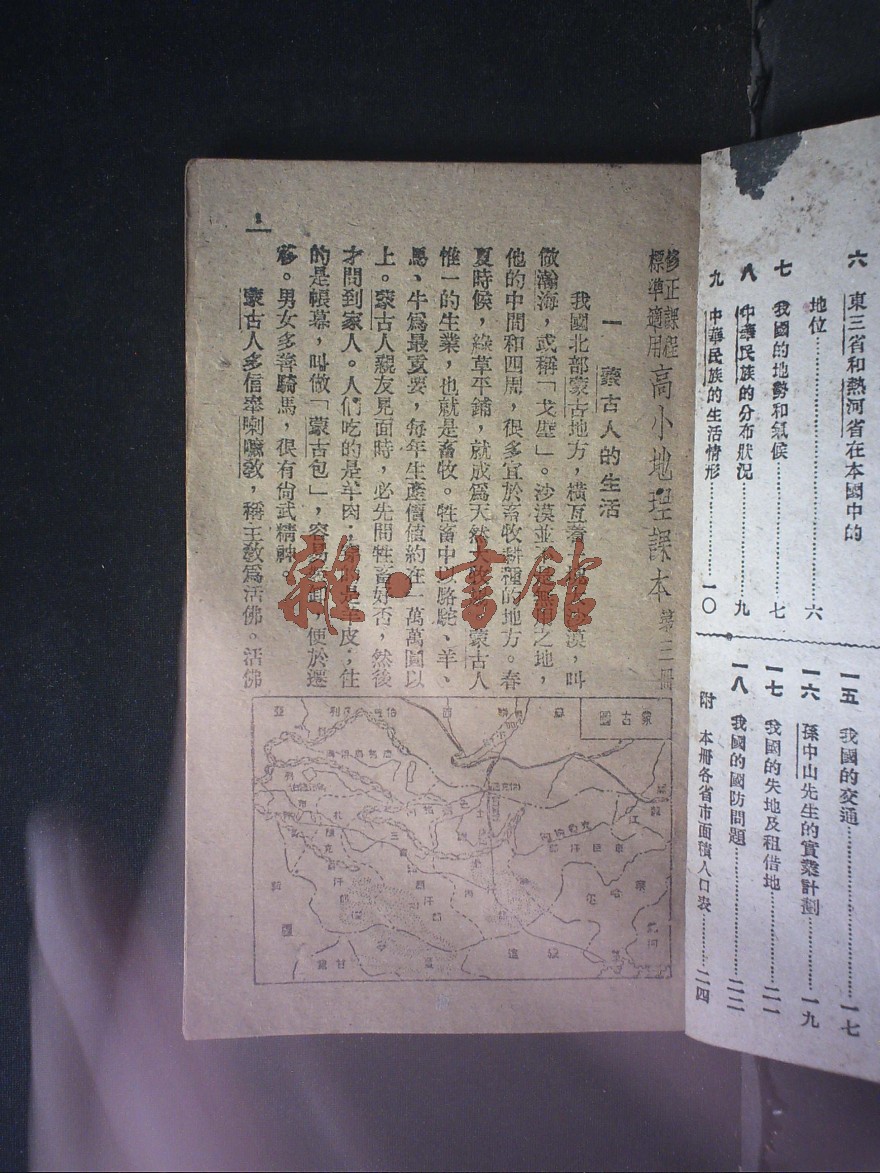 六 東三省和熱河省在本國中的
地位……六
七 我國的地勢和氣候……七
八 中華民族的分布狀況……九
九 中華民族的生活情形……一〇
一五 我國的交通……一七
一六 孫中山先生的實業計劃……一九
一七 我國的失地及租借地……二一
一八 我國的國防問題……二二
附 本冊各省市面積人口表……二四
修正課程
標準適用
高小地理課本 第三冊
一 蒙古人的生活
我國北部蒙古地方,橫亙着 漠,叫
做瀚海,或稱「戈壁」。沙漠並 之地,
他的中間和四周,很多宜於畜牧耕種的地方。春
夏時候,綠草平鋪,就成爲天然大牧 蒙古人
惟一的生業,也就是畜牧。牲畜中以駱駝、羊、
馬、牛爲最重要,每年生產價值約在一萬萬圓以
上。蒙古人親友見面時,必先問牲畜好否,然後
才問到家人。人們吃的是羊肉; 是羊皮;住
的是帳幕,叫做「蒙古包」,容易 卸,便於遷
移。男女多善騎馬,很有尙武精神。
蒙古人多信奉喇嘛敎,稱主敎爲活佛。活佛
1
蒙古圖
雜·書館